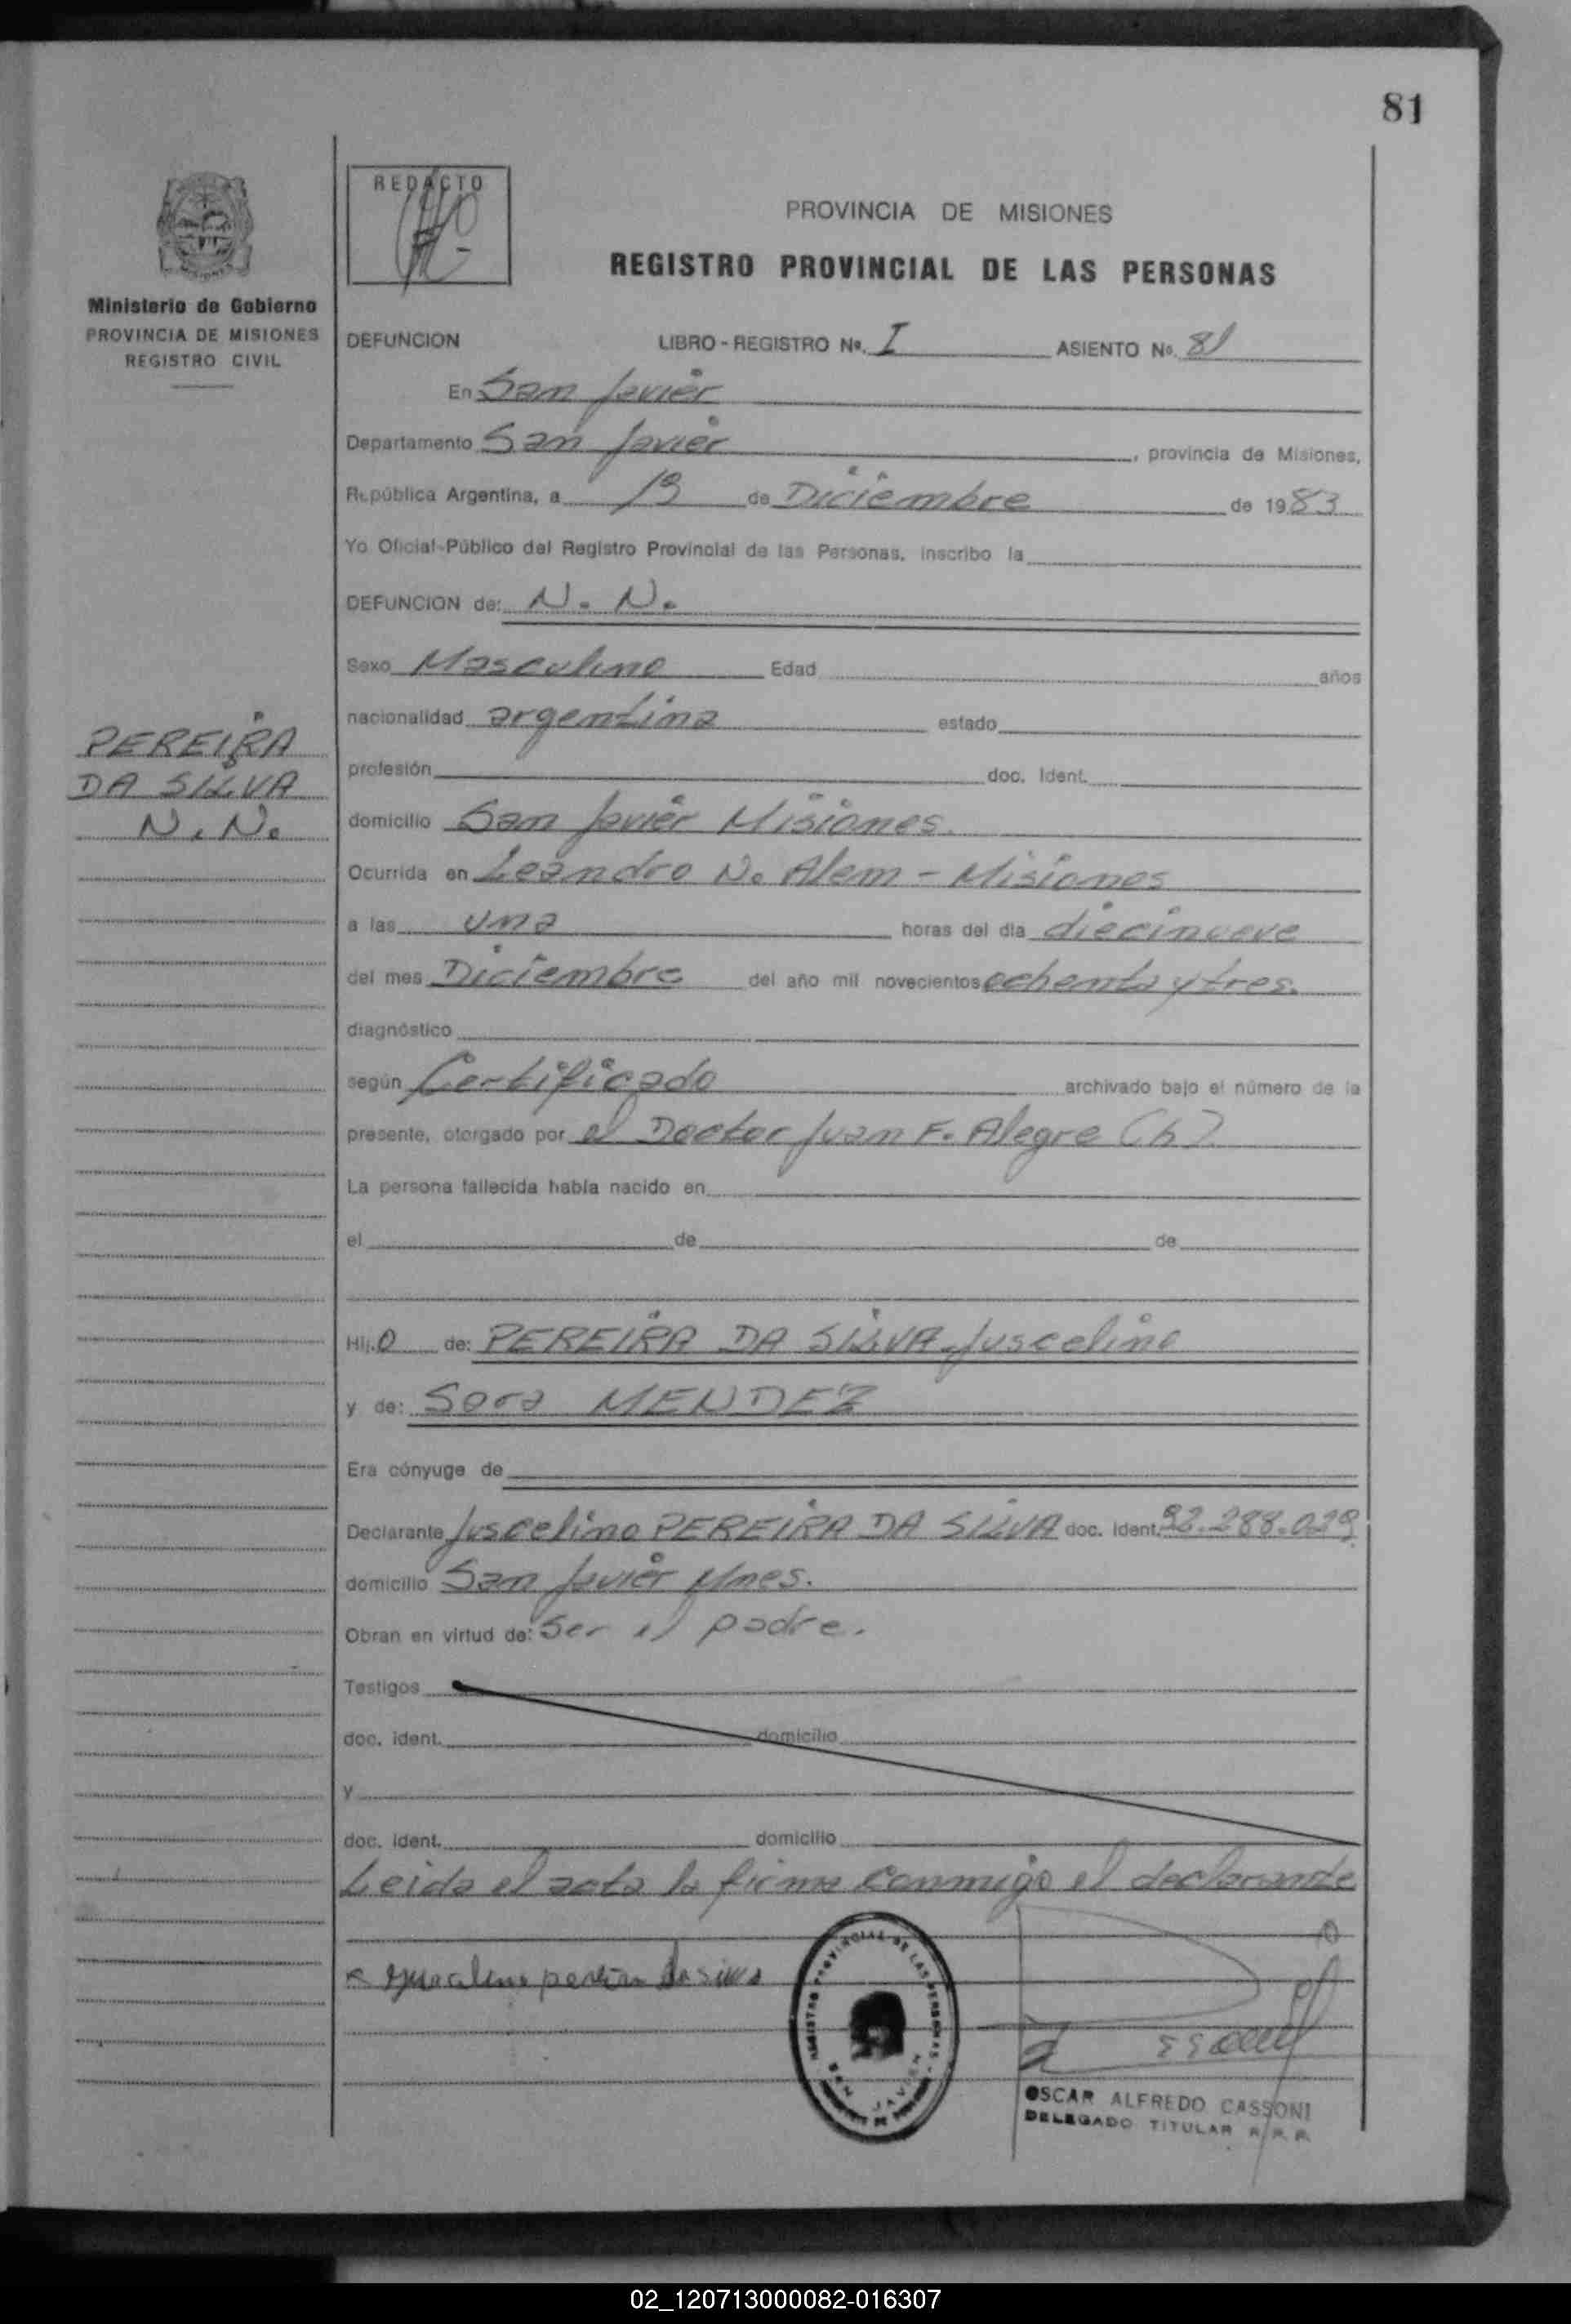 81
REDACTO
PROVINCIA DE MISIONES
REGISTRO PROVINCIAL DE LAS PERSONAS
Ministerio de Gobierno
PROVINCIA DE MISIONES
REGISTRO CIVIL
DEFUNCION LIBRO - REGISTRO Nº. I ASIENTO Nº. 81
En San Javier
Departamento San Javier, provincia de Misiones,
República Argentina, a 19 de Diciembre de 1983
Yo Oficial Público del Registro Provincial de las Personas, inscribo la
DEFUNCION de: N. N.
Sexo Masculino Edad años
nacionalidad argentina estado
profesión doc. Ident.
PEREIRA
DA SILVA
N. N.
domicilio San Javier Misiones.
Ocurrida en Leandro N. Alem - Misiones
a las una horas del día diecinueve
del mes Diciembre del año mil novecientos ochenta y tres.
diagnóstico
según Certificado archivado bajo el número de la
presente, otorgado por el Doctor Juan F. Alegre (h)
La persona fallecida había nacido en
el de de
Hij.o de: PEREIRA DA SILVA Juscelino
y de: MENDEZ
Era cónyuge de
Declarante Juscelino PEREIRA DA SILVA doc. ident. 92.288.029
domicilio San Javier Mnes.
Obran en virtud de: Ser el padre.
Testigos
doc. ident. domicilio
y
doc. ident. domicilio
Leida el acta la firma conmigo el declarante
REGISTRO PROVINCIAL DE LAS PERSONAS
SAN JAVIER
OSCAR ALFREDO CASSONI
DELEGADO TITULAR R.P.P.
02_120713000082-016307